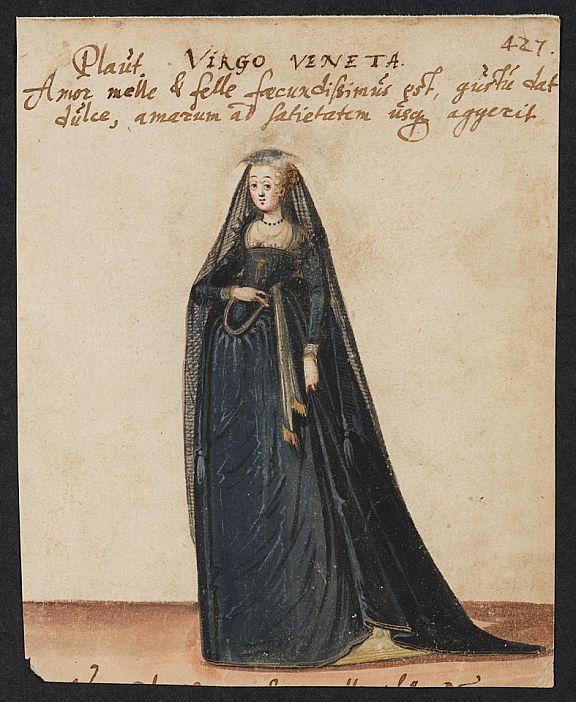 427.
Plaut. VIRGO VENETA.
Amor melle & felle fæcundissimus est, gustu dat
dulce, amarum ad satietatem usq aggerit